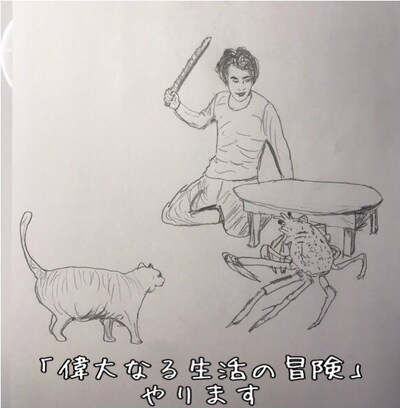 「偉大なる生活の冒険」
やります